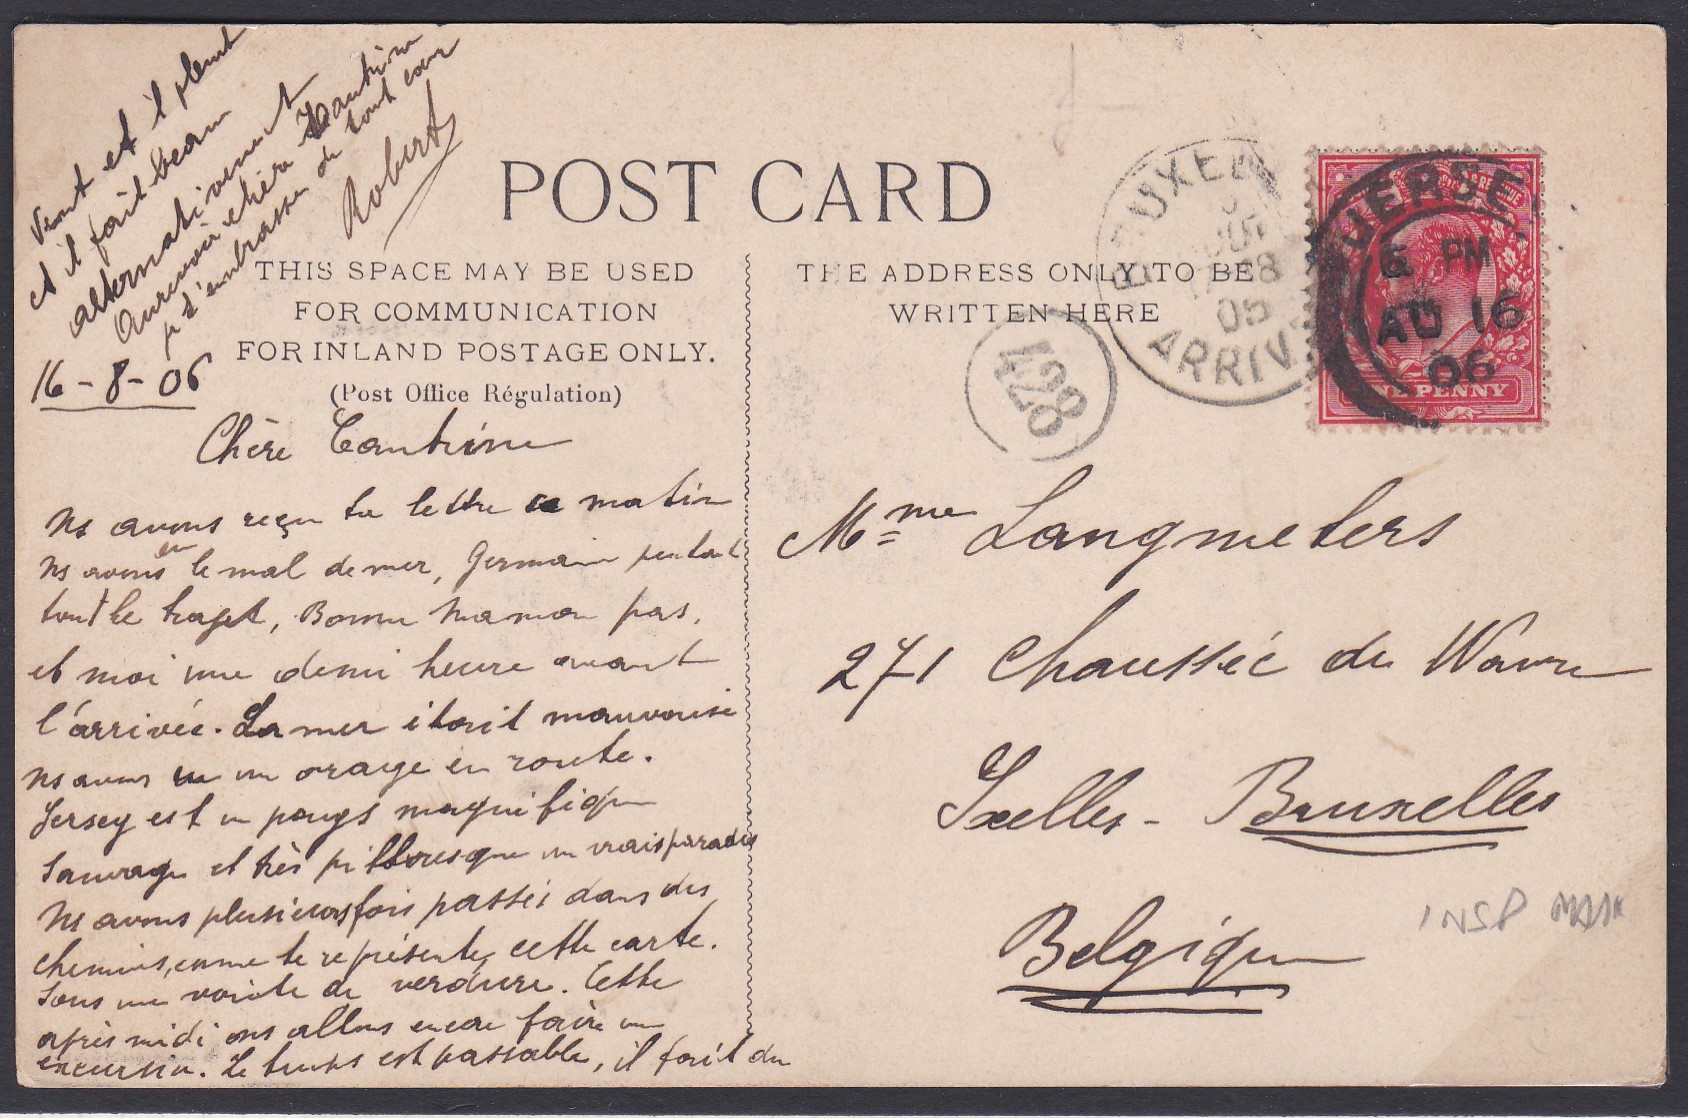 POST CARD
THIS SPACE MAY BE USED
FOR COMMUNICATION
FOR INLAND POSTAGE ONLY.
(Post Office Régulation)
THE ADDRESS ONLY TO BE
WRITTEN HERE
16-8-06
Chère Tantine
Ns avons reçu ta lettre ce matin
Ns avons eu le mal de mer, Germain pendant
tout le trajet, Bonne Maman pas,
et moi une demi heure avant
l'arrivée. La mer était mauvaise
Ns avons eu un orage en route.
Jersey est un pays magnifique
sauvage et très pittoresque un vrais paradis
Ns avons plusieurs fois passés dans des
chemins, comme te représente, cette carte.
sous une voûte de verdure. Cette
après midi ns allons encore faire une
excursion. Le temps est passable, il fait du
vent et il pleut
et il fait beau
alternativement
Aurevoir chère Tantine
d'embrasse de tout cœur
Robert
Mme Langmeters
271 Chaussée de Wavre
Ixelles - Bruxelles
Belgique
BRUXEL
18
06
ARRIV
428
8
UERSEY
6 PM
AU 16
06
ONE PENNY
INSP MARK